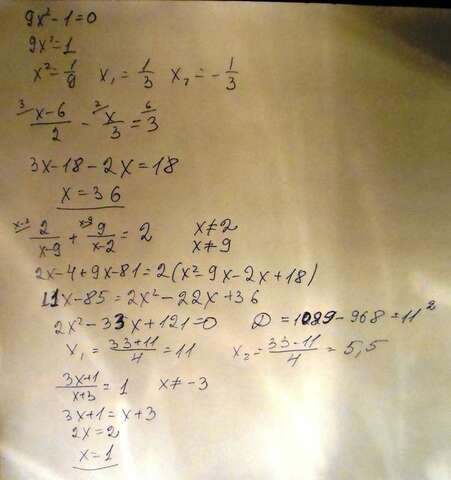 9x² - 1 = 0
9x² = 1
x² = 1/9 x₁ = 1/3 x₂ = -1/3
³⁄ (x-6)/2 - ²⁄ x/3 = ⁶⁄ 3
3x - 18 - 2x = 18
x = 36
ˣ⁻²⁄ 2/(x-9) + ˣ⁻⁹⁄ 9/(x-2) = 2 x ≠ 2
x ≠ 9
2x - 4 + 9x - 81 = 2(x² - 9x - 2x + 18)
11x - 85 = 2x² - 22x + 36
2x² - 33x + 121 = 0 D = 1089 - 968 = 11²
x₁ = (33+11)/4 = 11 x₂ = (33-11)/4 = 5,5
(3x+1)/(x+3) = 1 x ≠ -3
3x + 1 = x + 3
2x = 2
x = 1